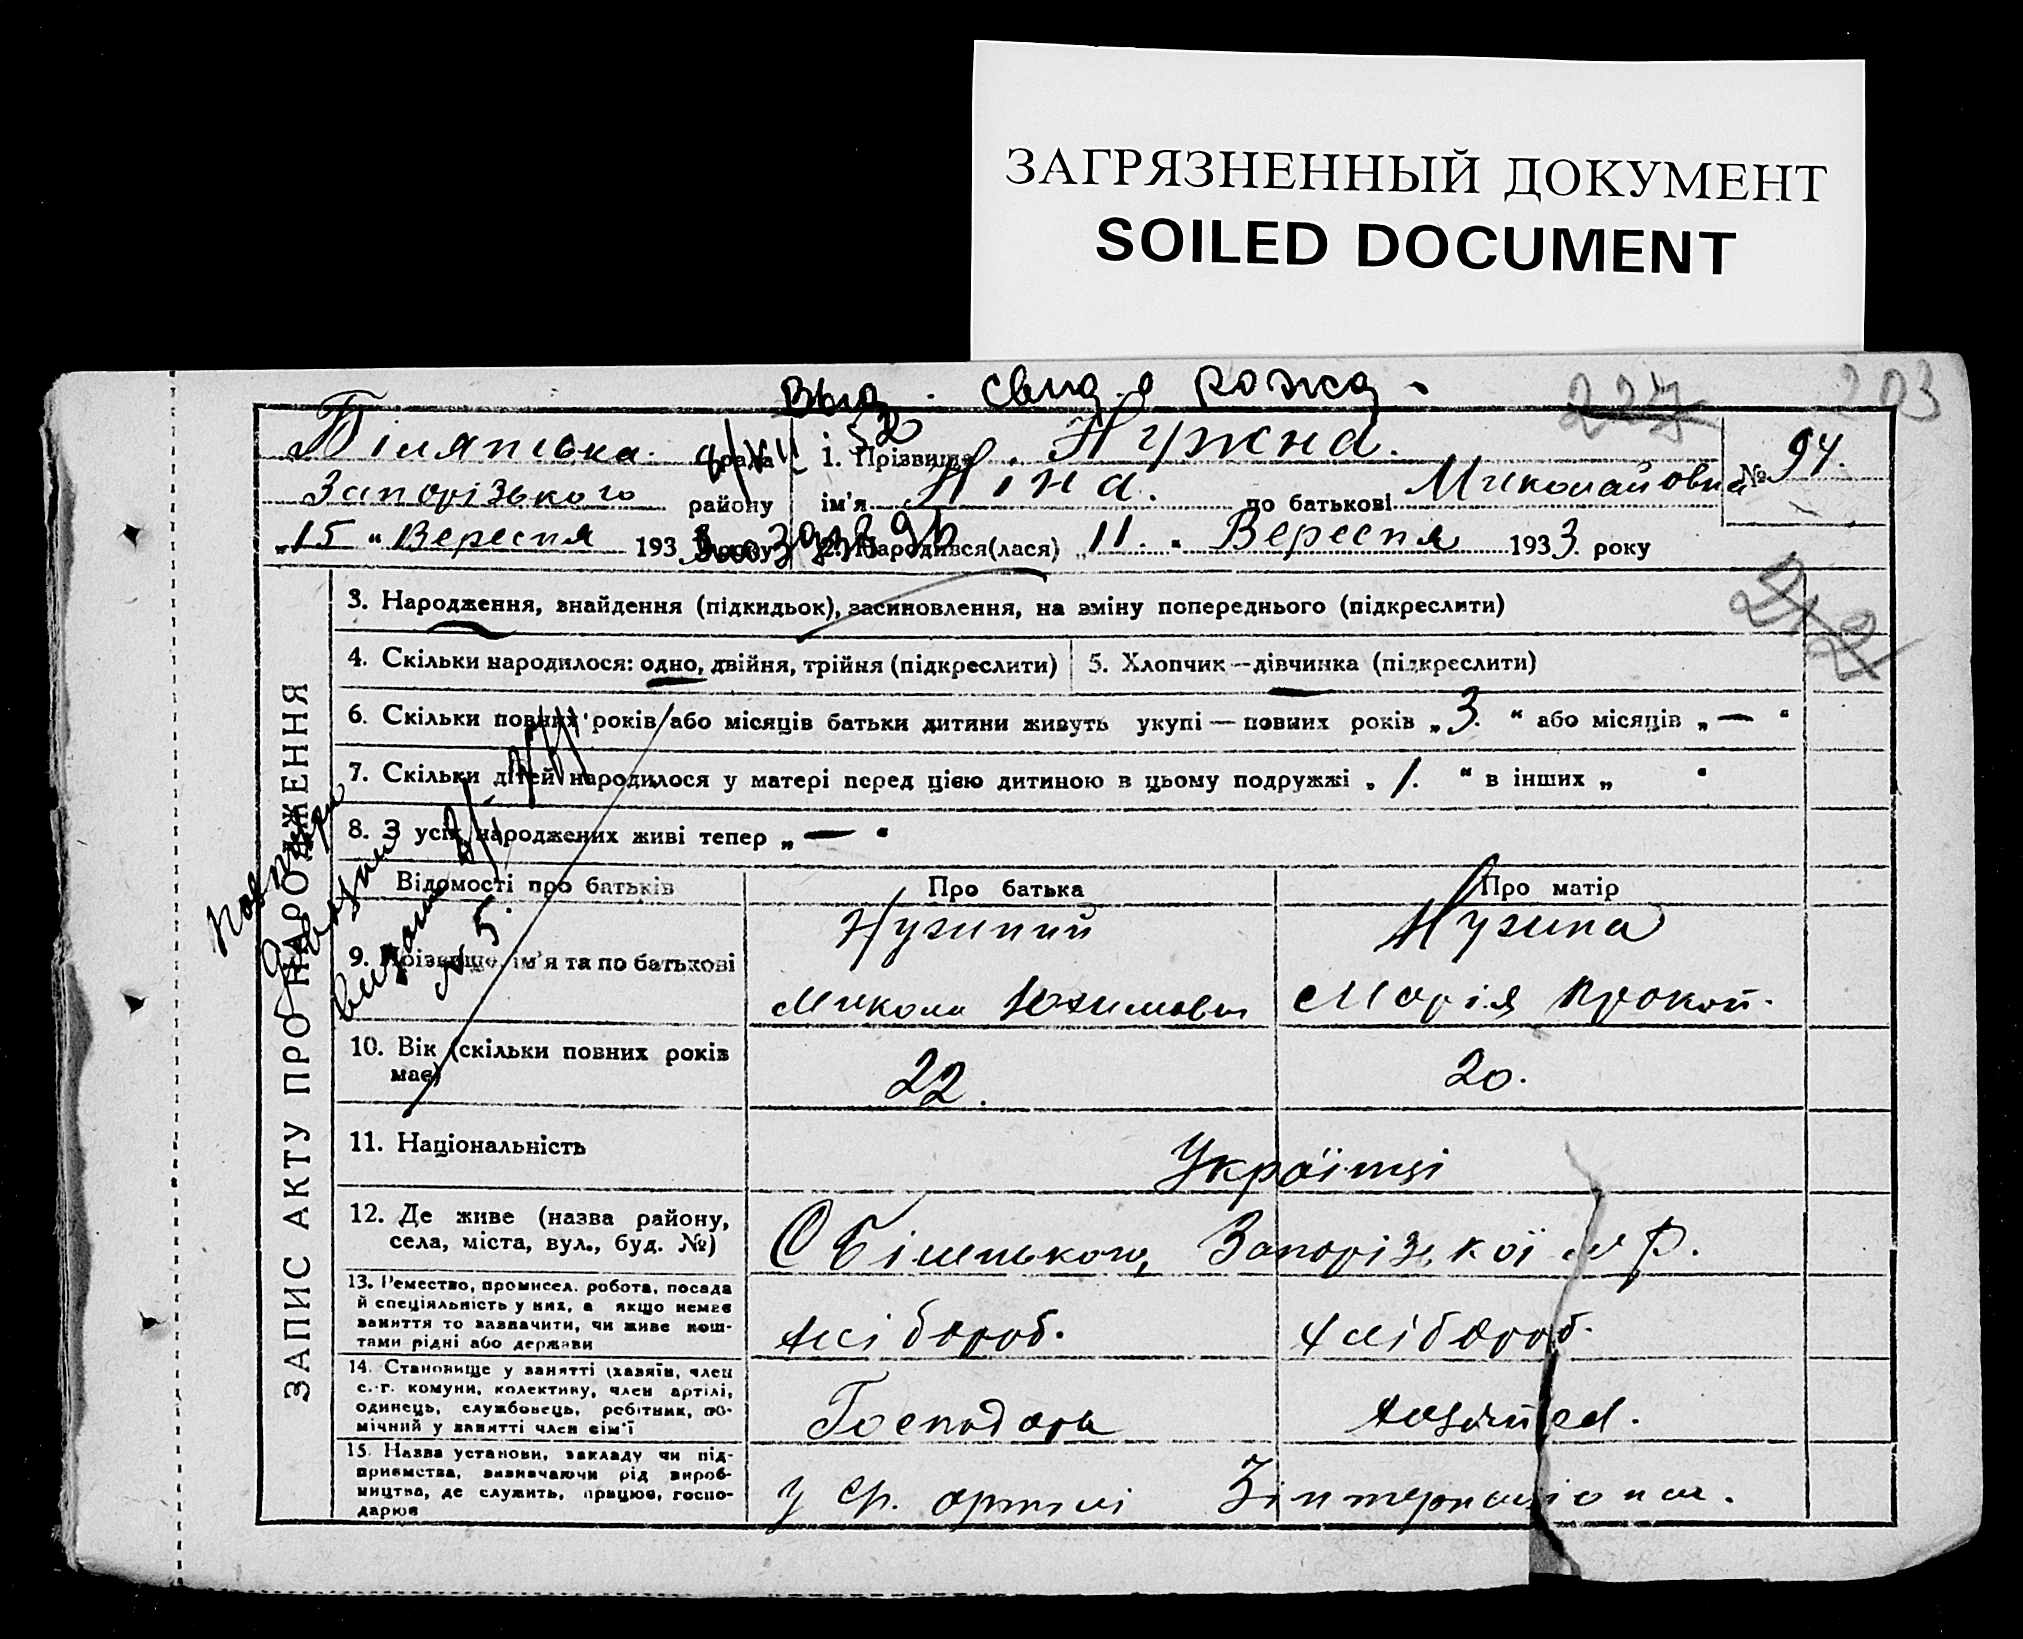 ЗАГРЯЗНЕННЫЙ ДОКУМЕНТ
SOILED DOCUMENT
227 203
рада 1. Прізвище Нужна. № 94.
Запорізького району ім'я Ніна. по батькові Миколайовна
„15 “ Вересня 193 року 2. Народився(лася) „11. “ Вересня 1933 року
212
ЗАПИС АКТУ ПРО НАРОДЖЕННЯ
3. Народження, знайдення (підкидьок), засиновлення, на зміну попереднього (підкреслити)
4. Скільки народилося: одно, двійня, трійня (підкреслити) 5. Хлопчик — дівчинка (підкреслити)
6. Скільки повних років або місяців батьки дитини живуть укупі — повних років „3. “ або місяців „ — “
7. Скільки дітей народилося у матері перед цією дитиною в цьому подружжі „ 1. “ в інших „ “
8. З усіх народжених живі тепер „ — “
Відомості про батьків Про батька Про матір
9. Прізвище, ім'я та по батькові
Микола Юхимович Марія Прокоп.
10. Вік (скільки повних років має) 22. 20.
11. Національність Українці
12. Де живе (назва району, села, міста, вул., буд. №)
13. Ремество, промисел, робота, посада й спеціяльність у них, а якщо немає заняття то зазначити, чи живе кош-
тами рідні або держави
14. Становище у занятті (хазяїн, член с.-г. комуни, колективу, член артілі, одинець, службовець, робітник, по-
мічний у занятті член сім'ї Господарь
15. Назва установи, закладу чи під-
приємства, визначаючи рід вироб-
ництва, де служить, працює, госпо-
дарює у ср. артілі 3 інтернаціонал.